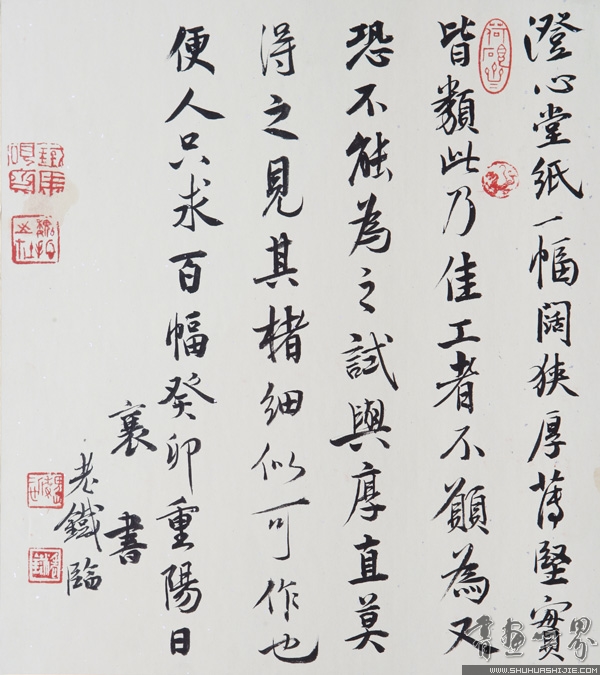 澄心堂紙一幅闊狹厚薄堅實
皆類此乃佳工者不願為又
恐不能為之試與厚直莫
得之見其楮細似可作也
便人只求百幅癸卯重陽日
襄書
老鐵臨
書畫世界
WWW.SHUHUASHIJIE.COM